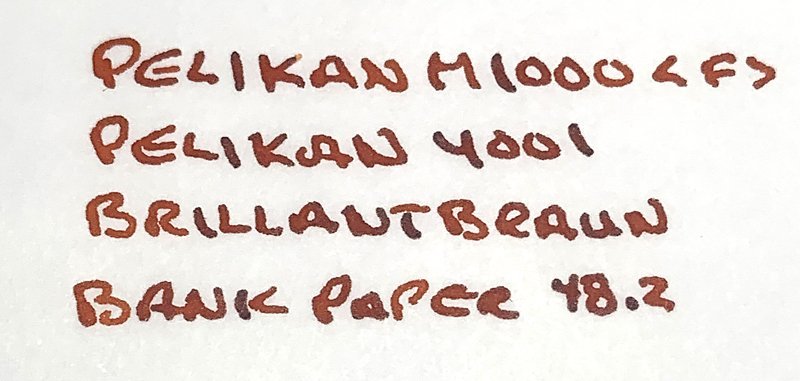 PELIKAN M1000 <F>
PELIKAN 4001
BRILLANTBRAUN
BANK PAPER 48.2